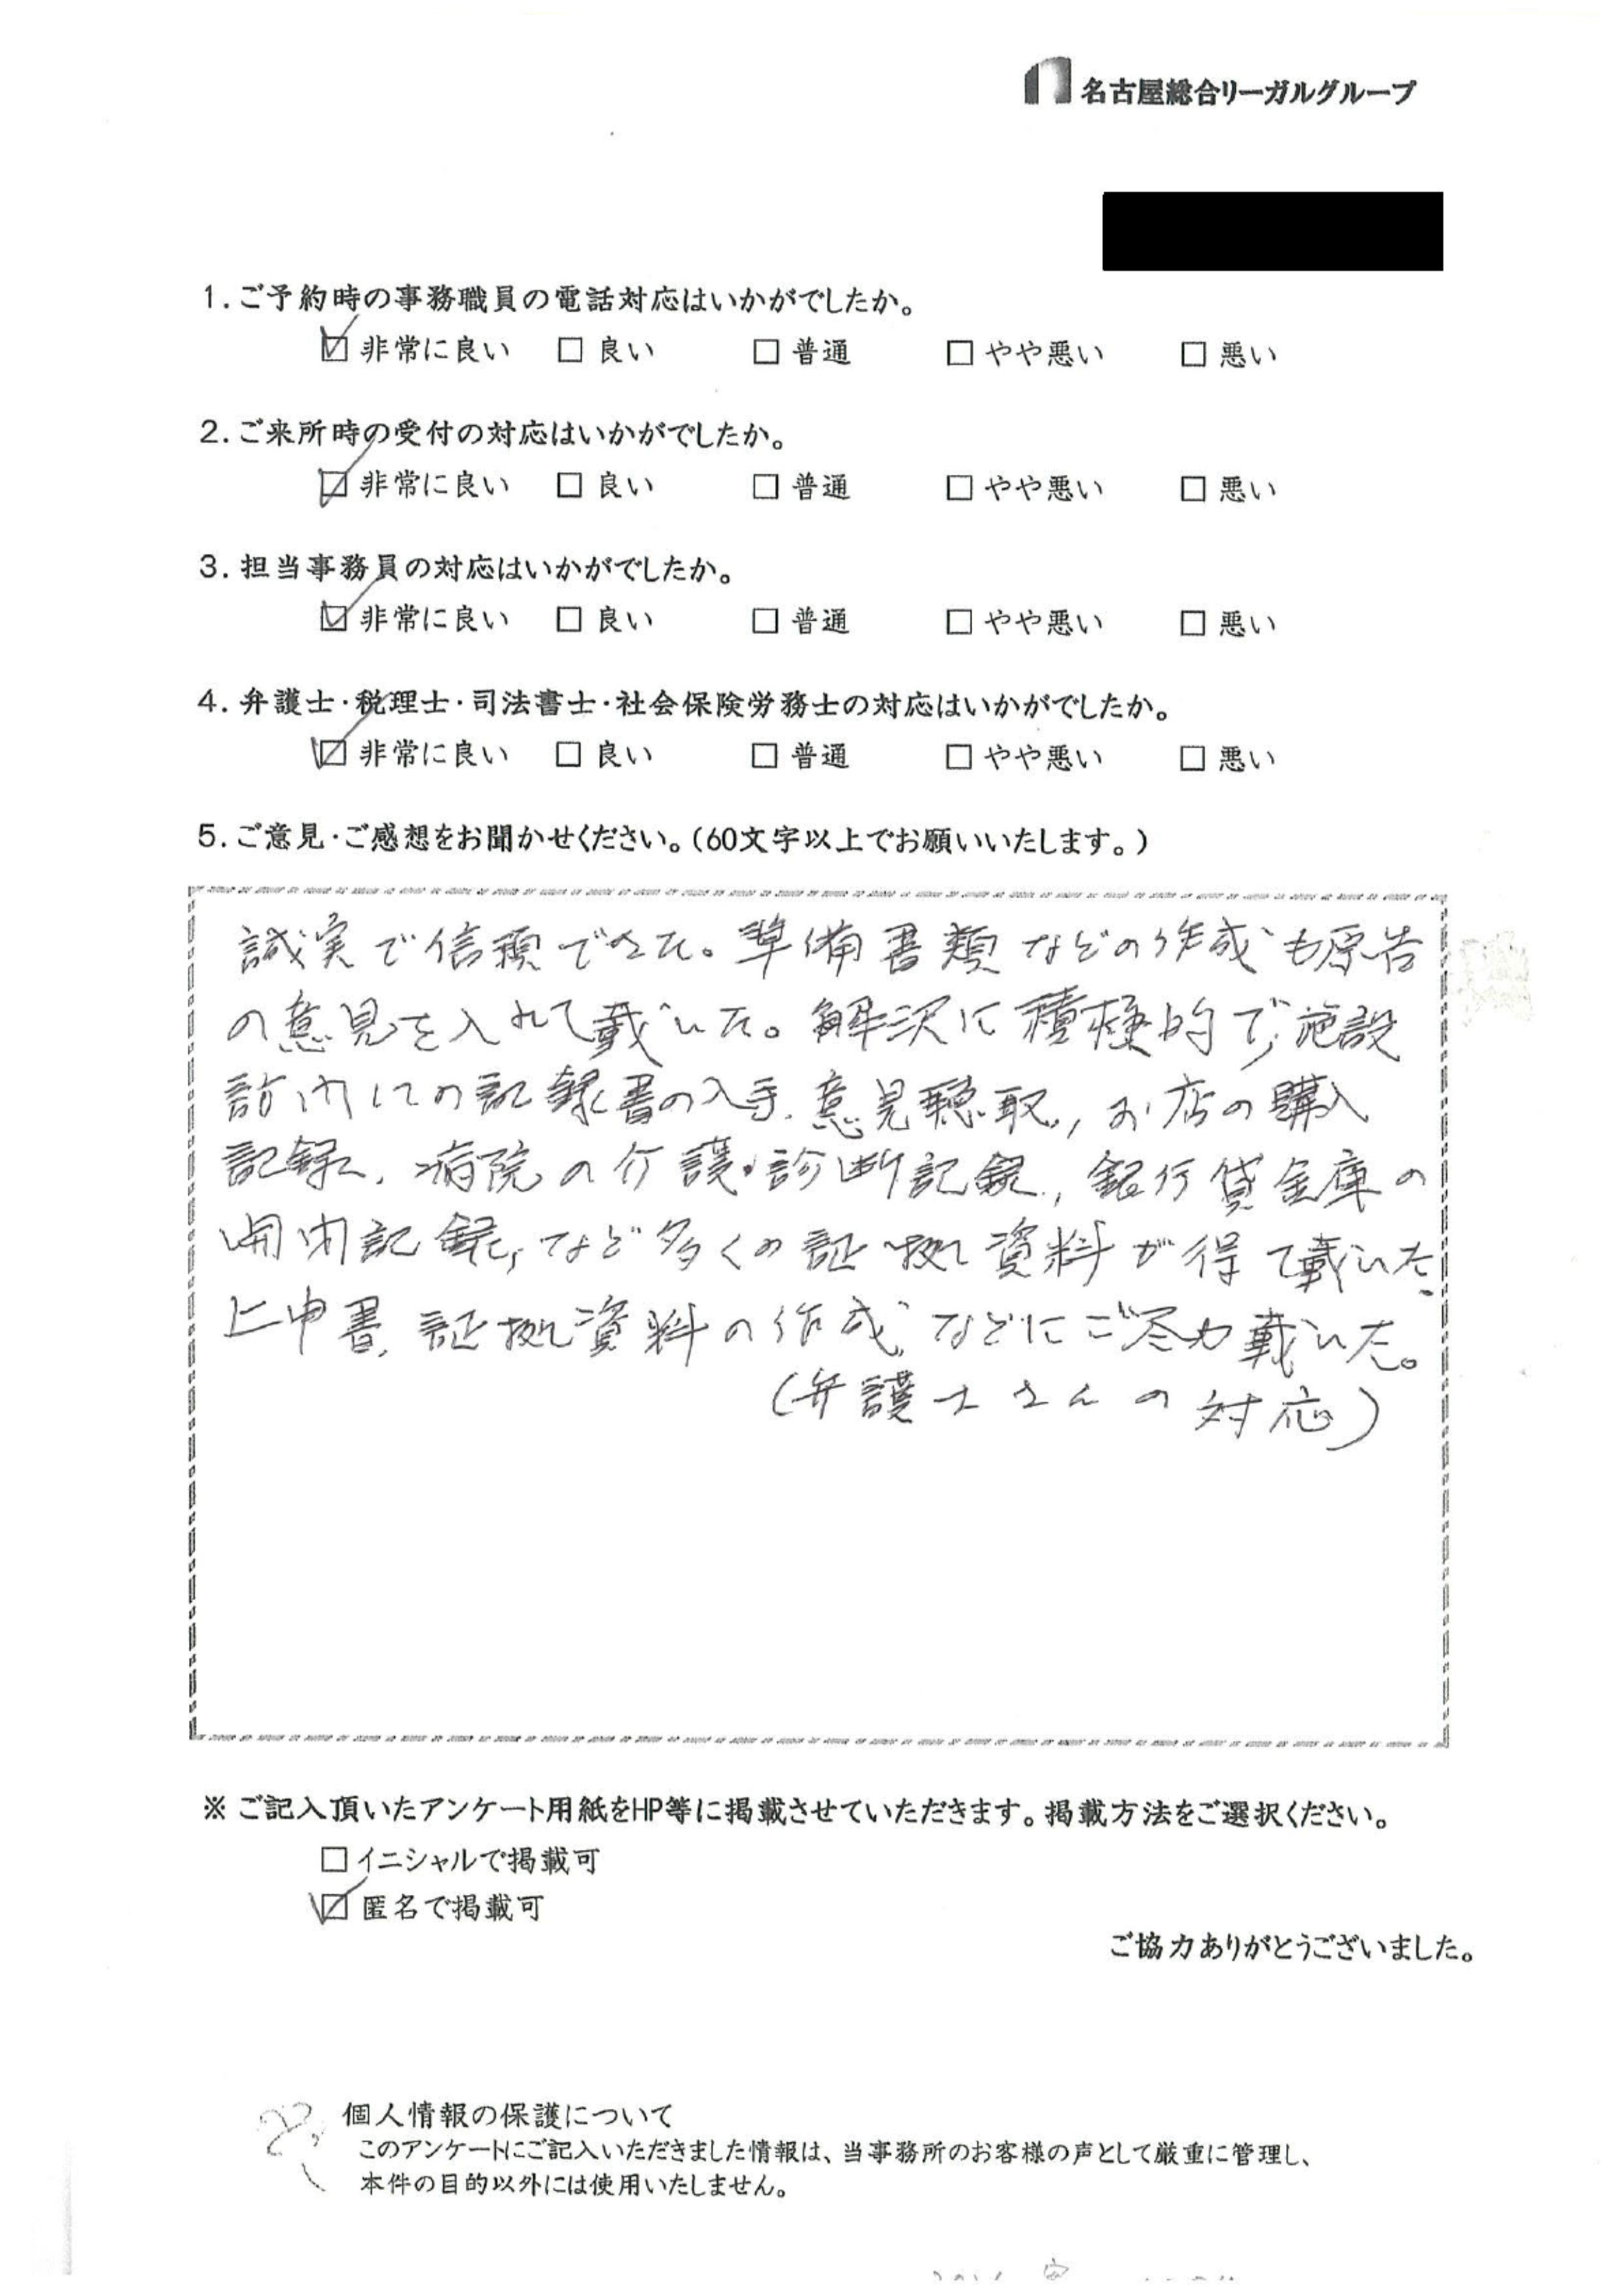 名古屋総合リーガルグループ
1.ご予約時の事務職員の電話対応はいかがでしたか。
☑非常に良い □良い □普通 □やや悪い □悪い
2.ご来所時の受付の対応はいかがでしたか。
☑非常に良い □良い □普通 □やや悪い □悪い
3.担当事務員の対応はいかがでしたか。
☑非常に良い □良い □普通 □やや悪い □悪い
4.弁護士・税理士・司法書士・社会保険労務士の対応はいかがでしたか。
☑非常に良い □良い □普通 □やや悪い □悪い
5.ご意見・ご感想をお聞かせください。(60文字以上でお願いいたします。)
誠実で信頼できた。準備書類などの作成も原告
の意見を入れて戴いた。解決に積極的で、施設
訪問しての記録書の入手、意見聴取、お店の購入
記録、病院の介護・診断記録、銀行貸金庫の
開閉記録、など多くの証拠資料が得て戴いた、
上申書、証拠資料の作成、などにご尽力戴いた。
(弁護士さんの対応)
※ご記入頂いたアンケート用紙をHP等に掲載させていただきます。掲載方法をご選択ください。
□イニシャルで掲載可
☑匿名で掲載可
ご協力ありがとうございました。
個人情報の保護について
このアンケートにご記入いただきました情報は、当事務所のお客様の声として厳重に管理し、
本件の目的以外には使用いたしません。